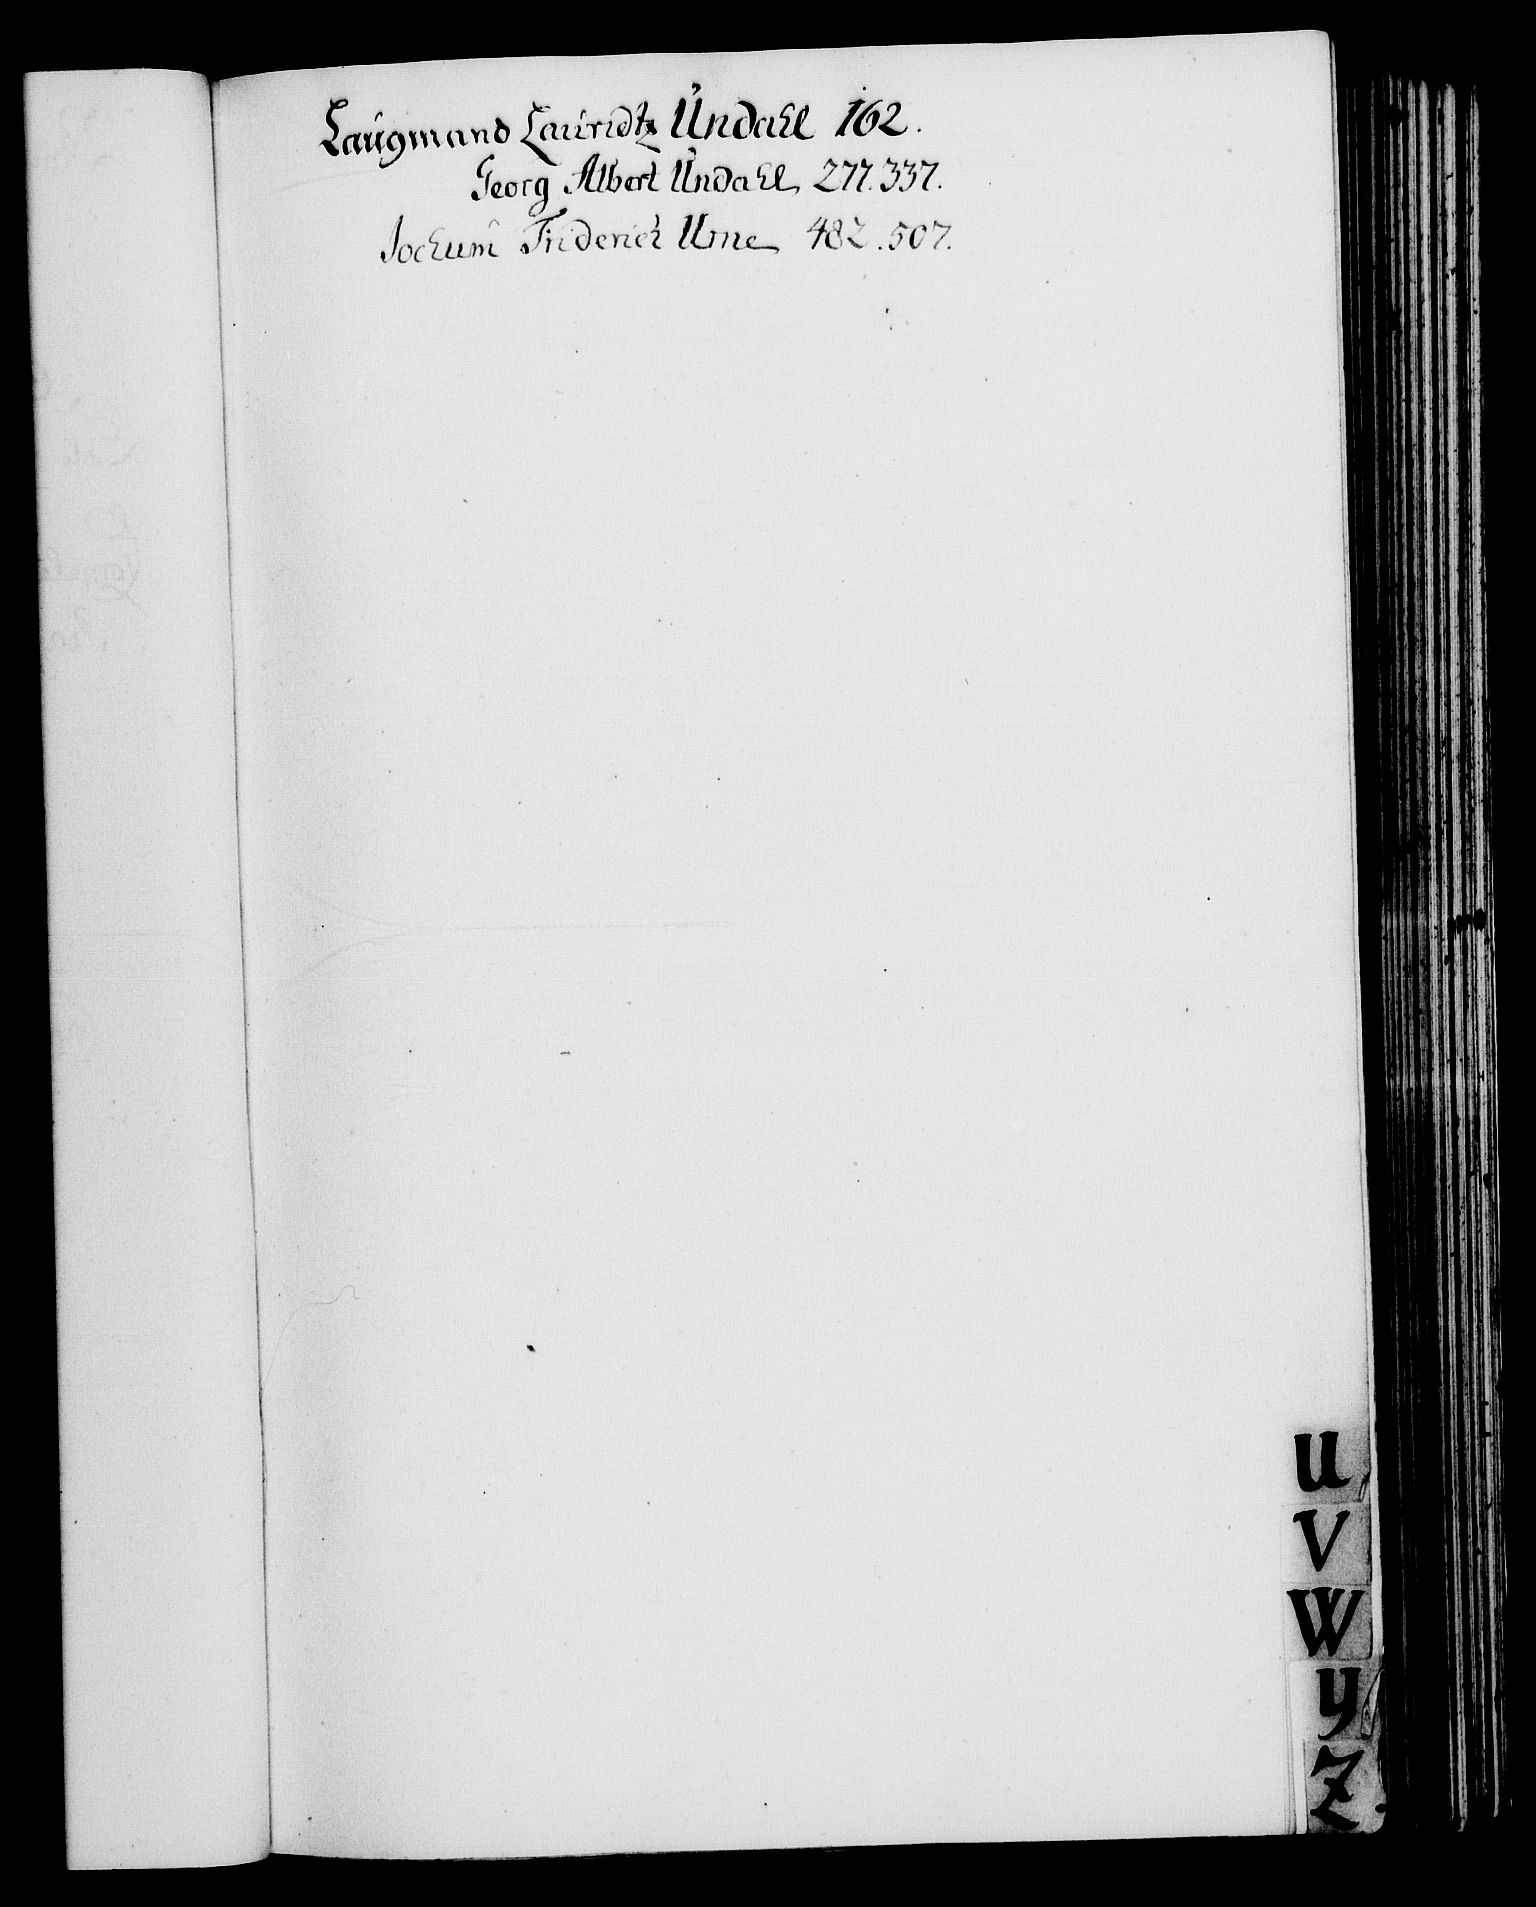 Laugmand Lauridtz Undahl 162.
Georg Albert Undahl 277. 337.
Jochum Friderich Urne 482. 507.
U
V
W
Y
Z